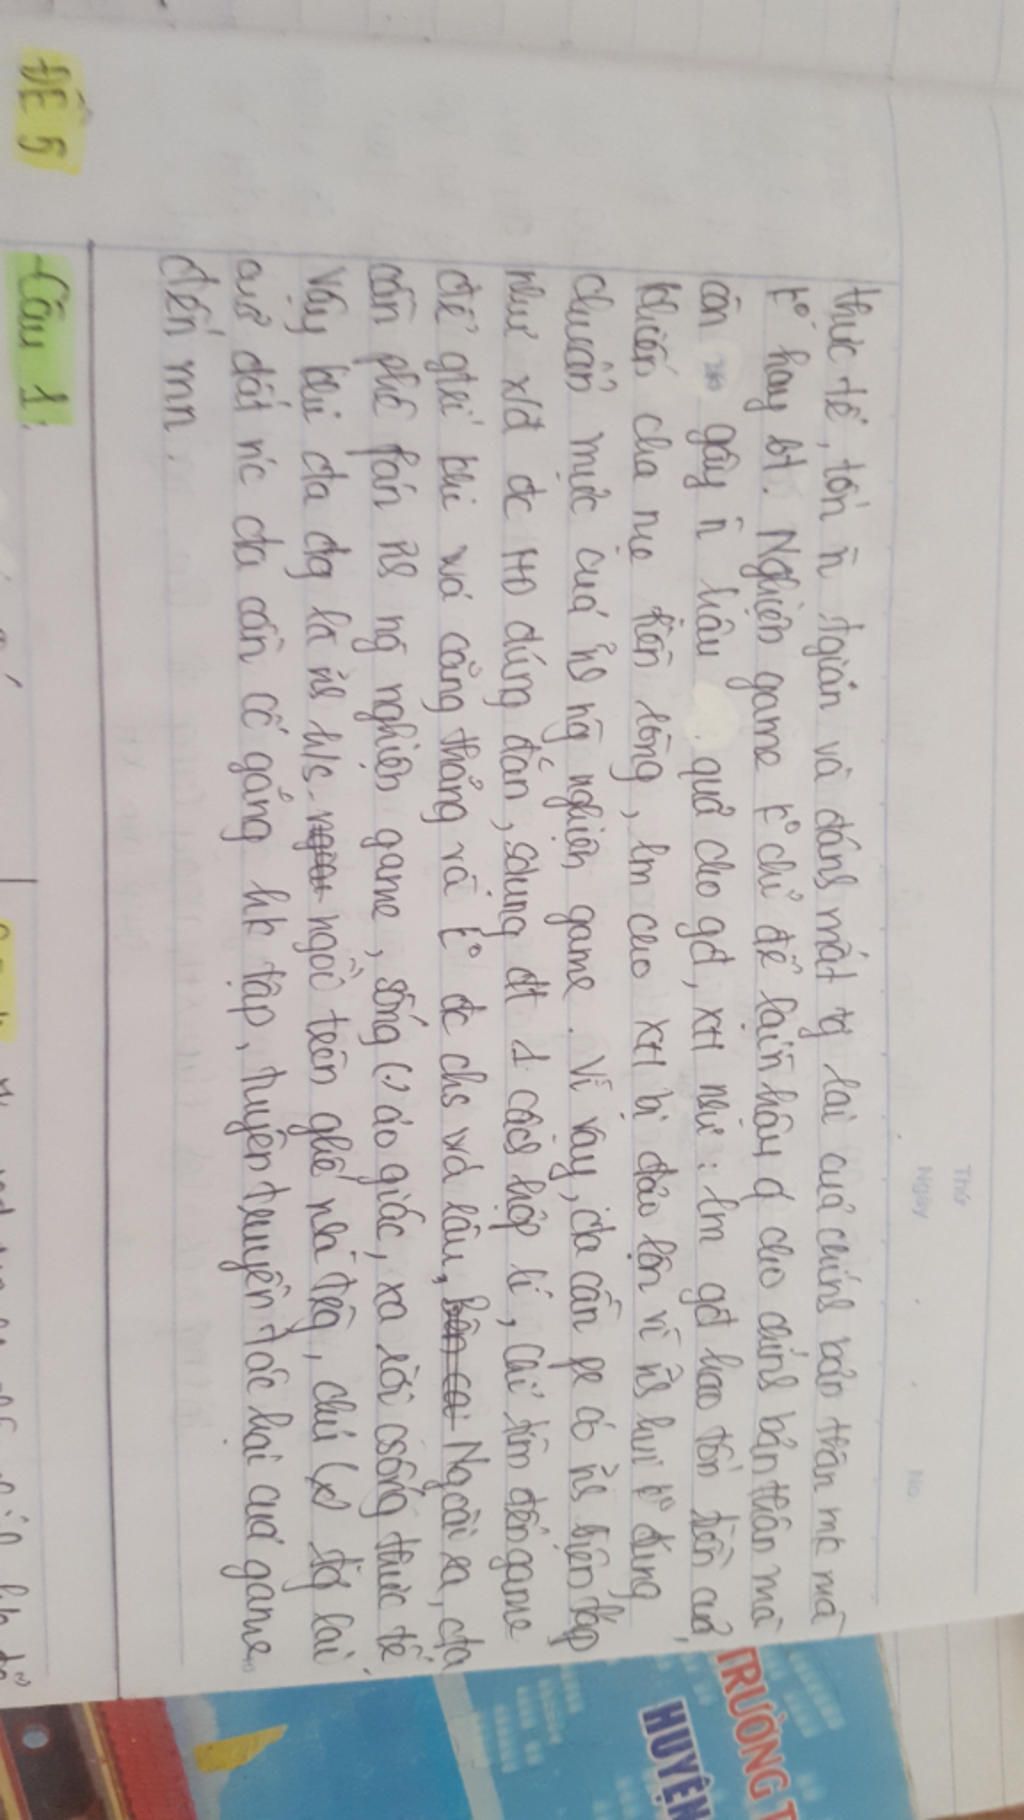 Thứ
Ngày
No.
thực tế, tốn ñ tgian và đánh mất tg lai cuả chính bản thân mk mà
t° hay bt. Nghiện game t° chỉ để lại ñ hậu q cho chính bản thân mà
còn gây ñ hậu quả cho gđ, XH như: lm gđ hao tốn tiền của,
khiến cha mẹ fiền lòng, lm cho XH bị đảo lộn vì ~ns hvi t° đúng
chuẩn mực cuả ~ns ng~ nghiện game. Vì vậy, cta cần fk có ~ns biện fáp
như x/đ đc HĐ đúng đắn, sdụng đt 1 cách hợp lí, chỉ tìm đến game
để gtrí khi wá căng thẳng và t° đc chs wá lâu, Ngoài ra, cta
cần phê fán ~ns ng~ nghiện game, sống (.) ảo giác, xa rời csống thực tế.
Vậy khi cta đg là ~ns h/s ngồi trên ghế nhà trg, chủ (x) tg lai
cuả đất nc cta cần cố gắng hk tập, tuyên truyền tác hại cuả game
đến mn.
ĐỀ 5
Câu 1:
TRƯỜNG T
HUYỆN